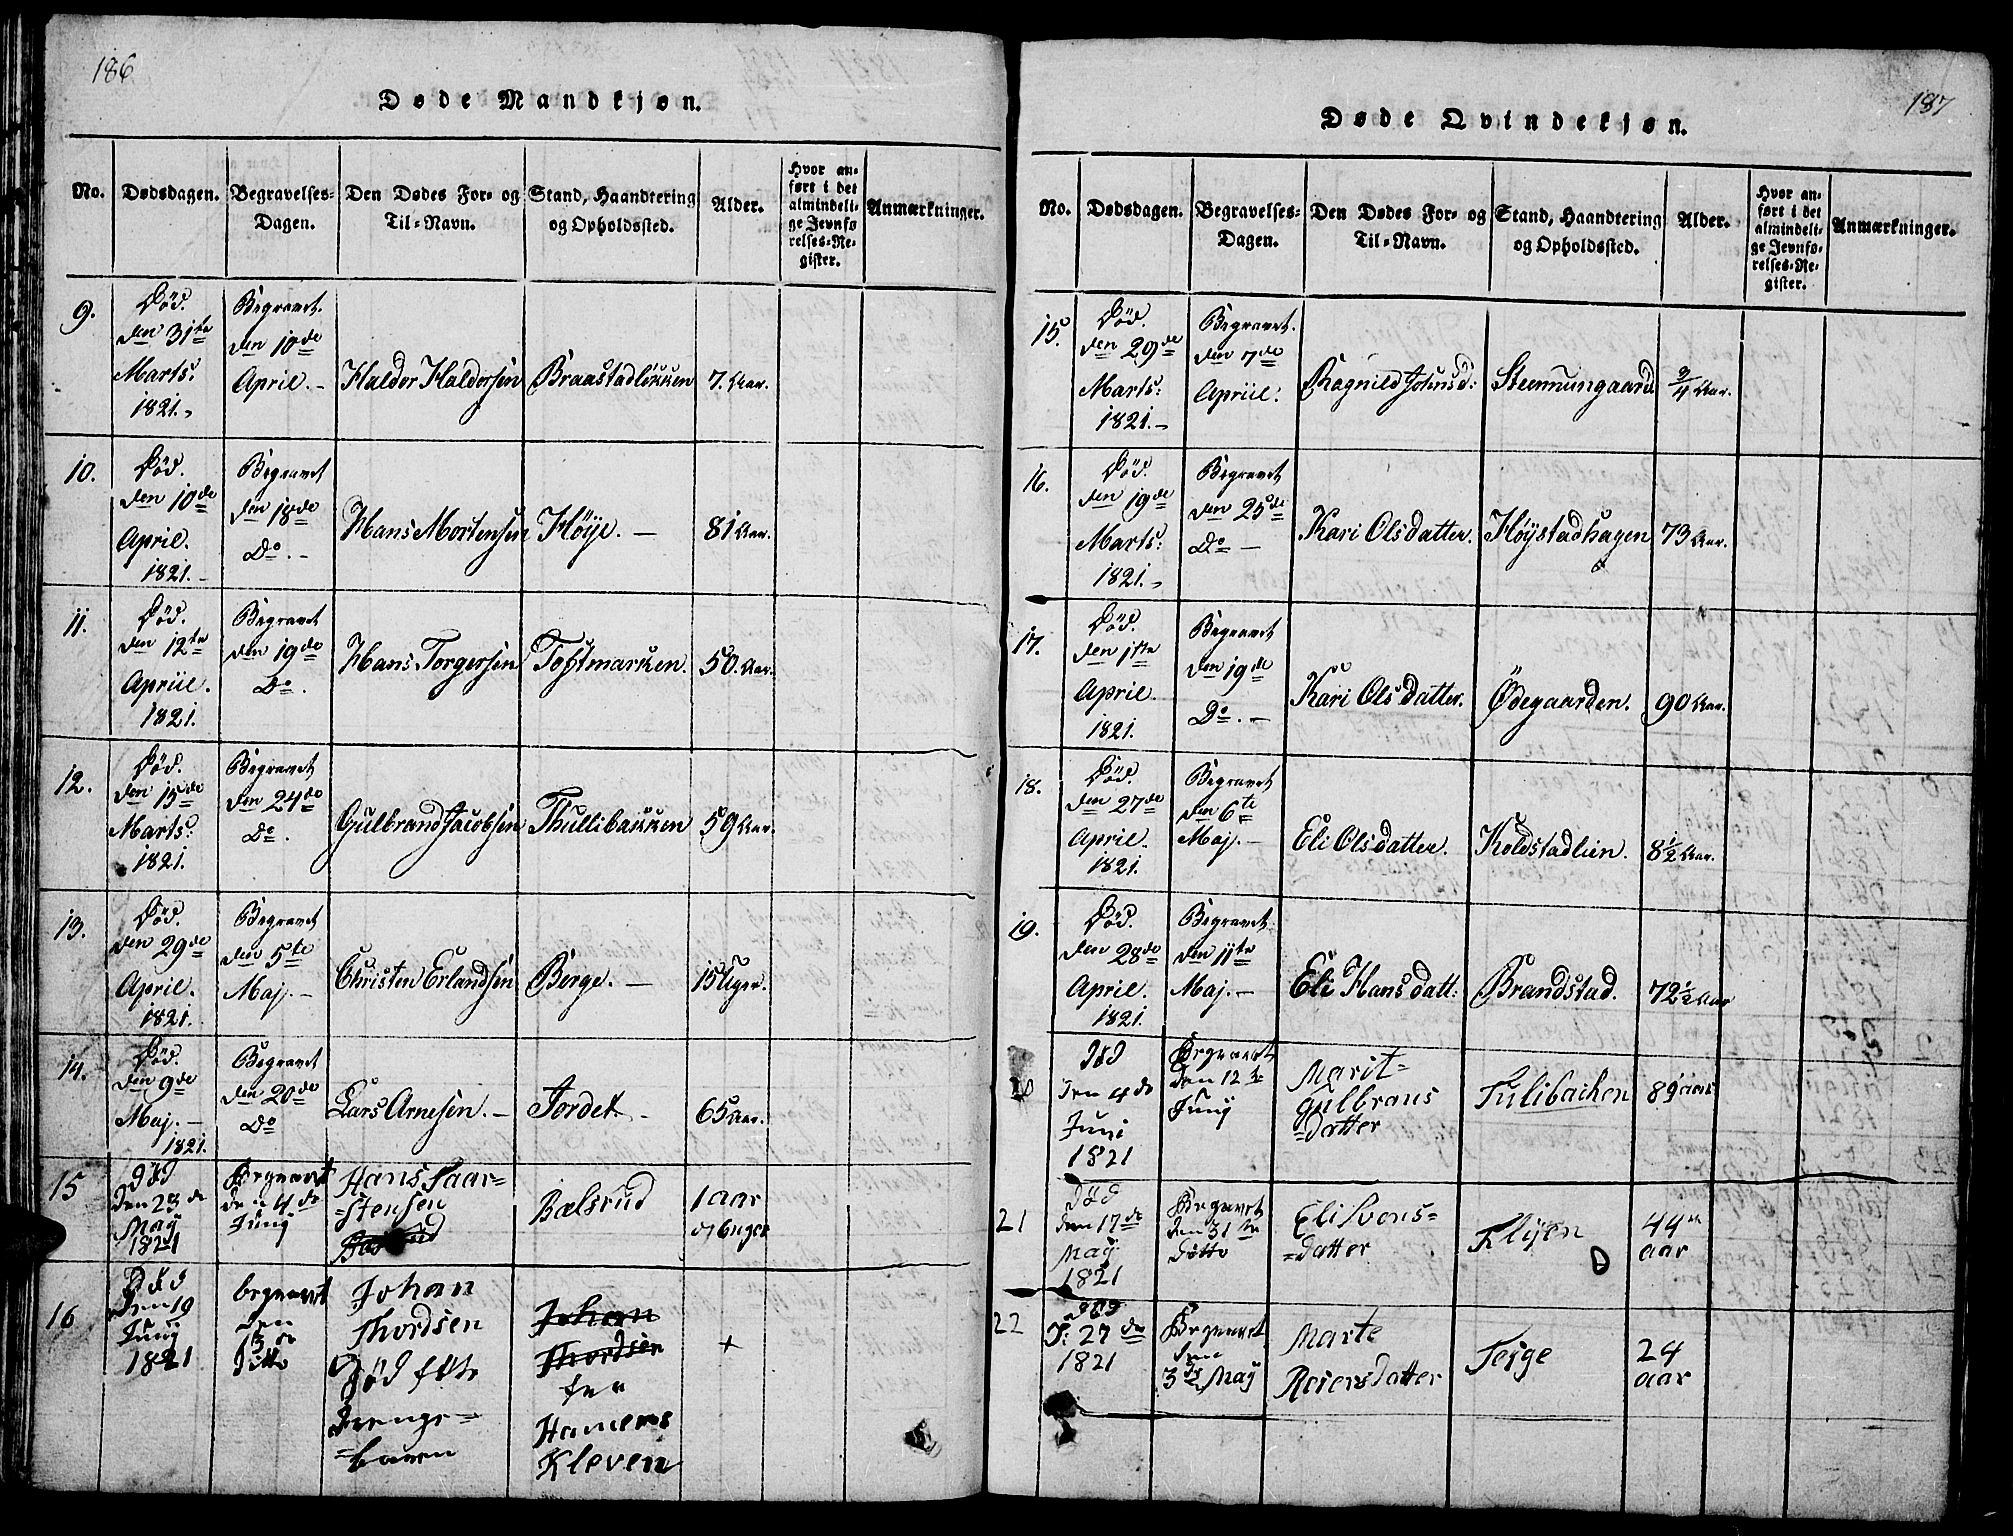 186
Døde Mandkjøn.
No. Dødsdagen. Begravelses-Dagen. Den Dødes For- og Til-Navn. Stand, Haandtering og Opholdssted. Alder. Hvor anført i det almindelige Jevnførelses-Register. Anmærkninger.
9. Død. den 31te Marts. 1821. Begravet. den 10de April. Haldor Haldorsen Braastadløkken 7. Aar.
10. Død. den 10de April. 1821. Begravet den 18de Do. Hans Mortensen Høije. 81 Aar.
11. Død. den 12te Apriil. 1821. Begravet den 19de Do. Hans Torgersen Toftmarken. 50. Aar.
12. Død. den 15de Marts. 1821. Begravet den 24de Do. Gulbrand Jacobsen Thullibakken 59 Aar.
13. Død. den 29de April. 1821. Begravet den 5te Maj. Christen Erlandsen Berge. 15 Uger.
14. Død. den 9de Maj. 1821. Begravet den 20de Do Lars Arnesen. Jordet 65 Aar.
15 død den 23de May 1821 Begravet den 4de Junj Hans Paar=stensen Bælsrud 1 aar
16 Død den 19 Junij 1821 begravet den ditto Johan Thordsen Død født Drenge=barn Johan Thordsen Kleven +
187
Døde Qvindekjøn.
No. Dødsdagen. Begravelses-Dagen. Den Dødes For- og Til-Navn. Stand, Haandtering og Opholdssted. Alder. Hvor anført i det almindelige Jevnførelses-Register. Anmærkninger.
15. Død. den 29de Marts: 1821. Begravet. den 7de Apriil. Ragnild Johnsd: Steensungaard 3/4 Aar.
16. Død. den 19de Marts: 1821. Begravet den 25de Do Kari Olsdatter. Høystadhagen 73 Aar.
17. Død. den 11te April. 1821. Begravet den 19de Do. Kari Olsdatter. Ødegaarden. 90 Aar.
18. Død. den 27de April. 1821. Begravet den 6te Maj. Eli Olsdatter. Koldstadlien. 8 1/2 Aar.
19. Død. den 28de April. 1821. Begravet. den 11te Maj. Eli Hansdatt: Brandstad. 72 1/2 Aar
20 død den 4de Juni 1821 Begravet den 12te Junij Marit Gulbrans=datter Tulibachen 89 aar
21 død den 17de May 1821 Begravet den 31te Ditto Eli Svens=datter Kleyen 44 aar
22 død 27de 1821 Begravet den 3de May Marte Reiersdatter Forge 24 aar